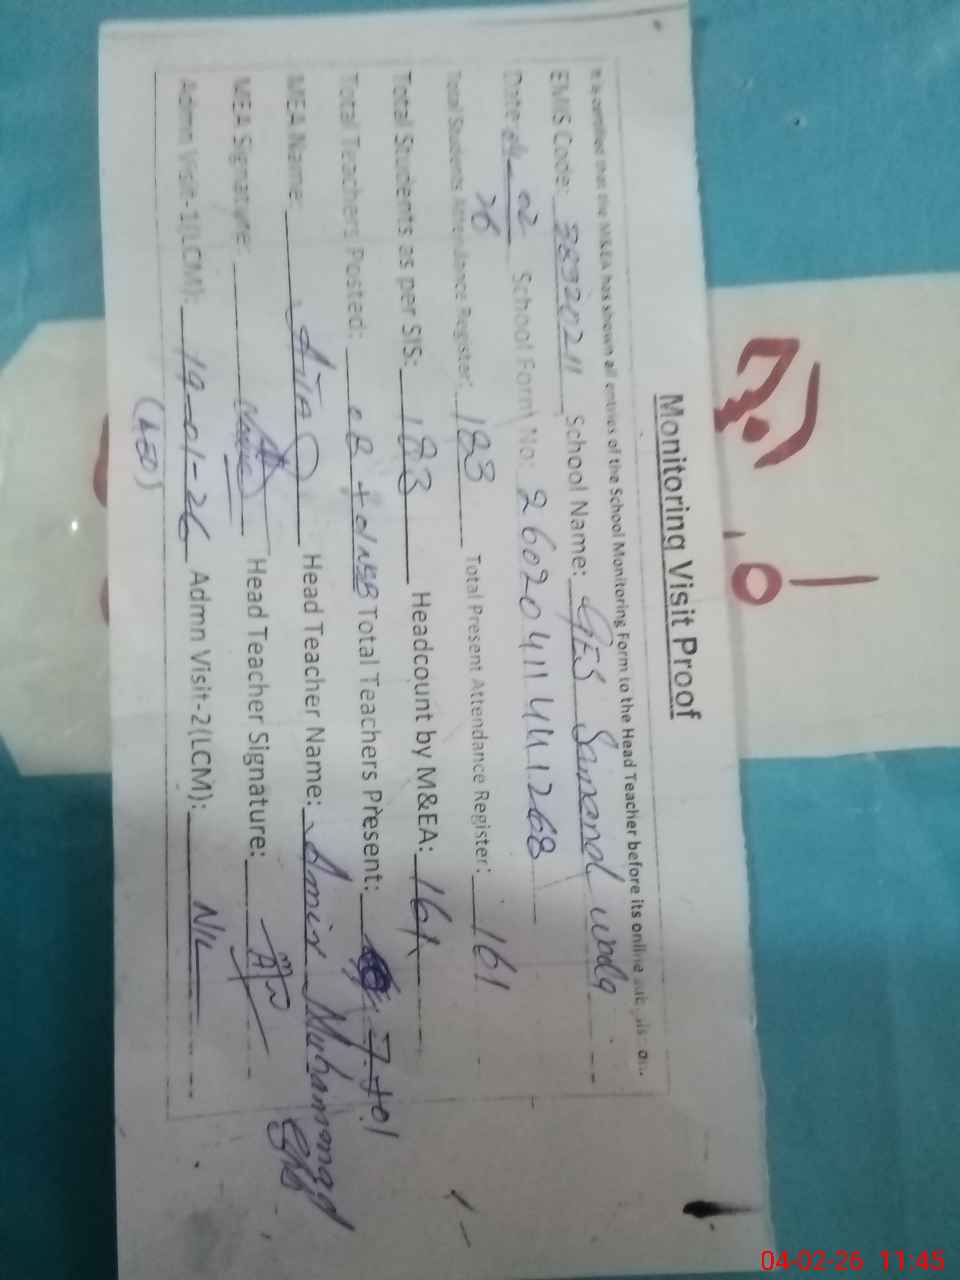 Monitoring Visit Proof
It is certified that the M&EA has shown all entries of the School Monitoring Form to the Head Teacher before its online
EMIS Code: 38920211 School Name: GES Samand wala
Date 04-02 School Form No: 26020411441268
26
Total Students Attendance Register: 183 Total Present Attendance Register: 161
Total Students as per SIS: 183 Headcount by M&EA: 161
Total Teachers Posted: 08 + Total Teachers Present: 7+01
MEA Name: Head Teacher Name: Amir Muhammad
MEA Signature: Head Teacher Signature:
Admn Visit-1(LCM): 19-01-26 Admn Visit-2(LCM): NIL
(AEO)
04-02-26 11:45